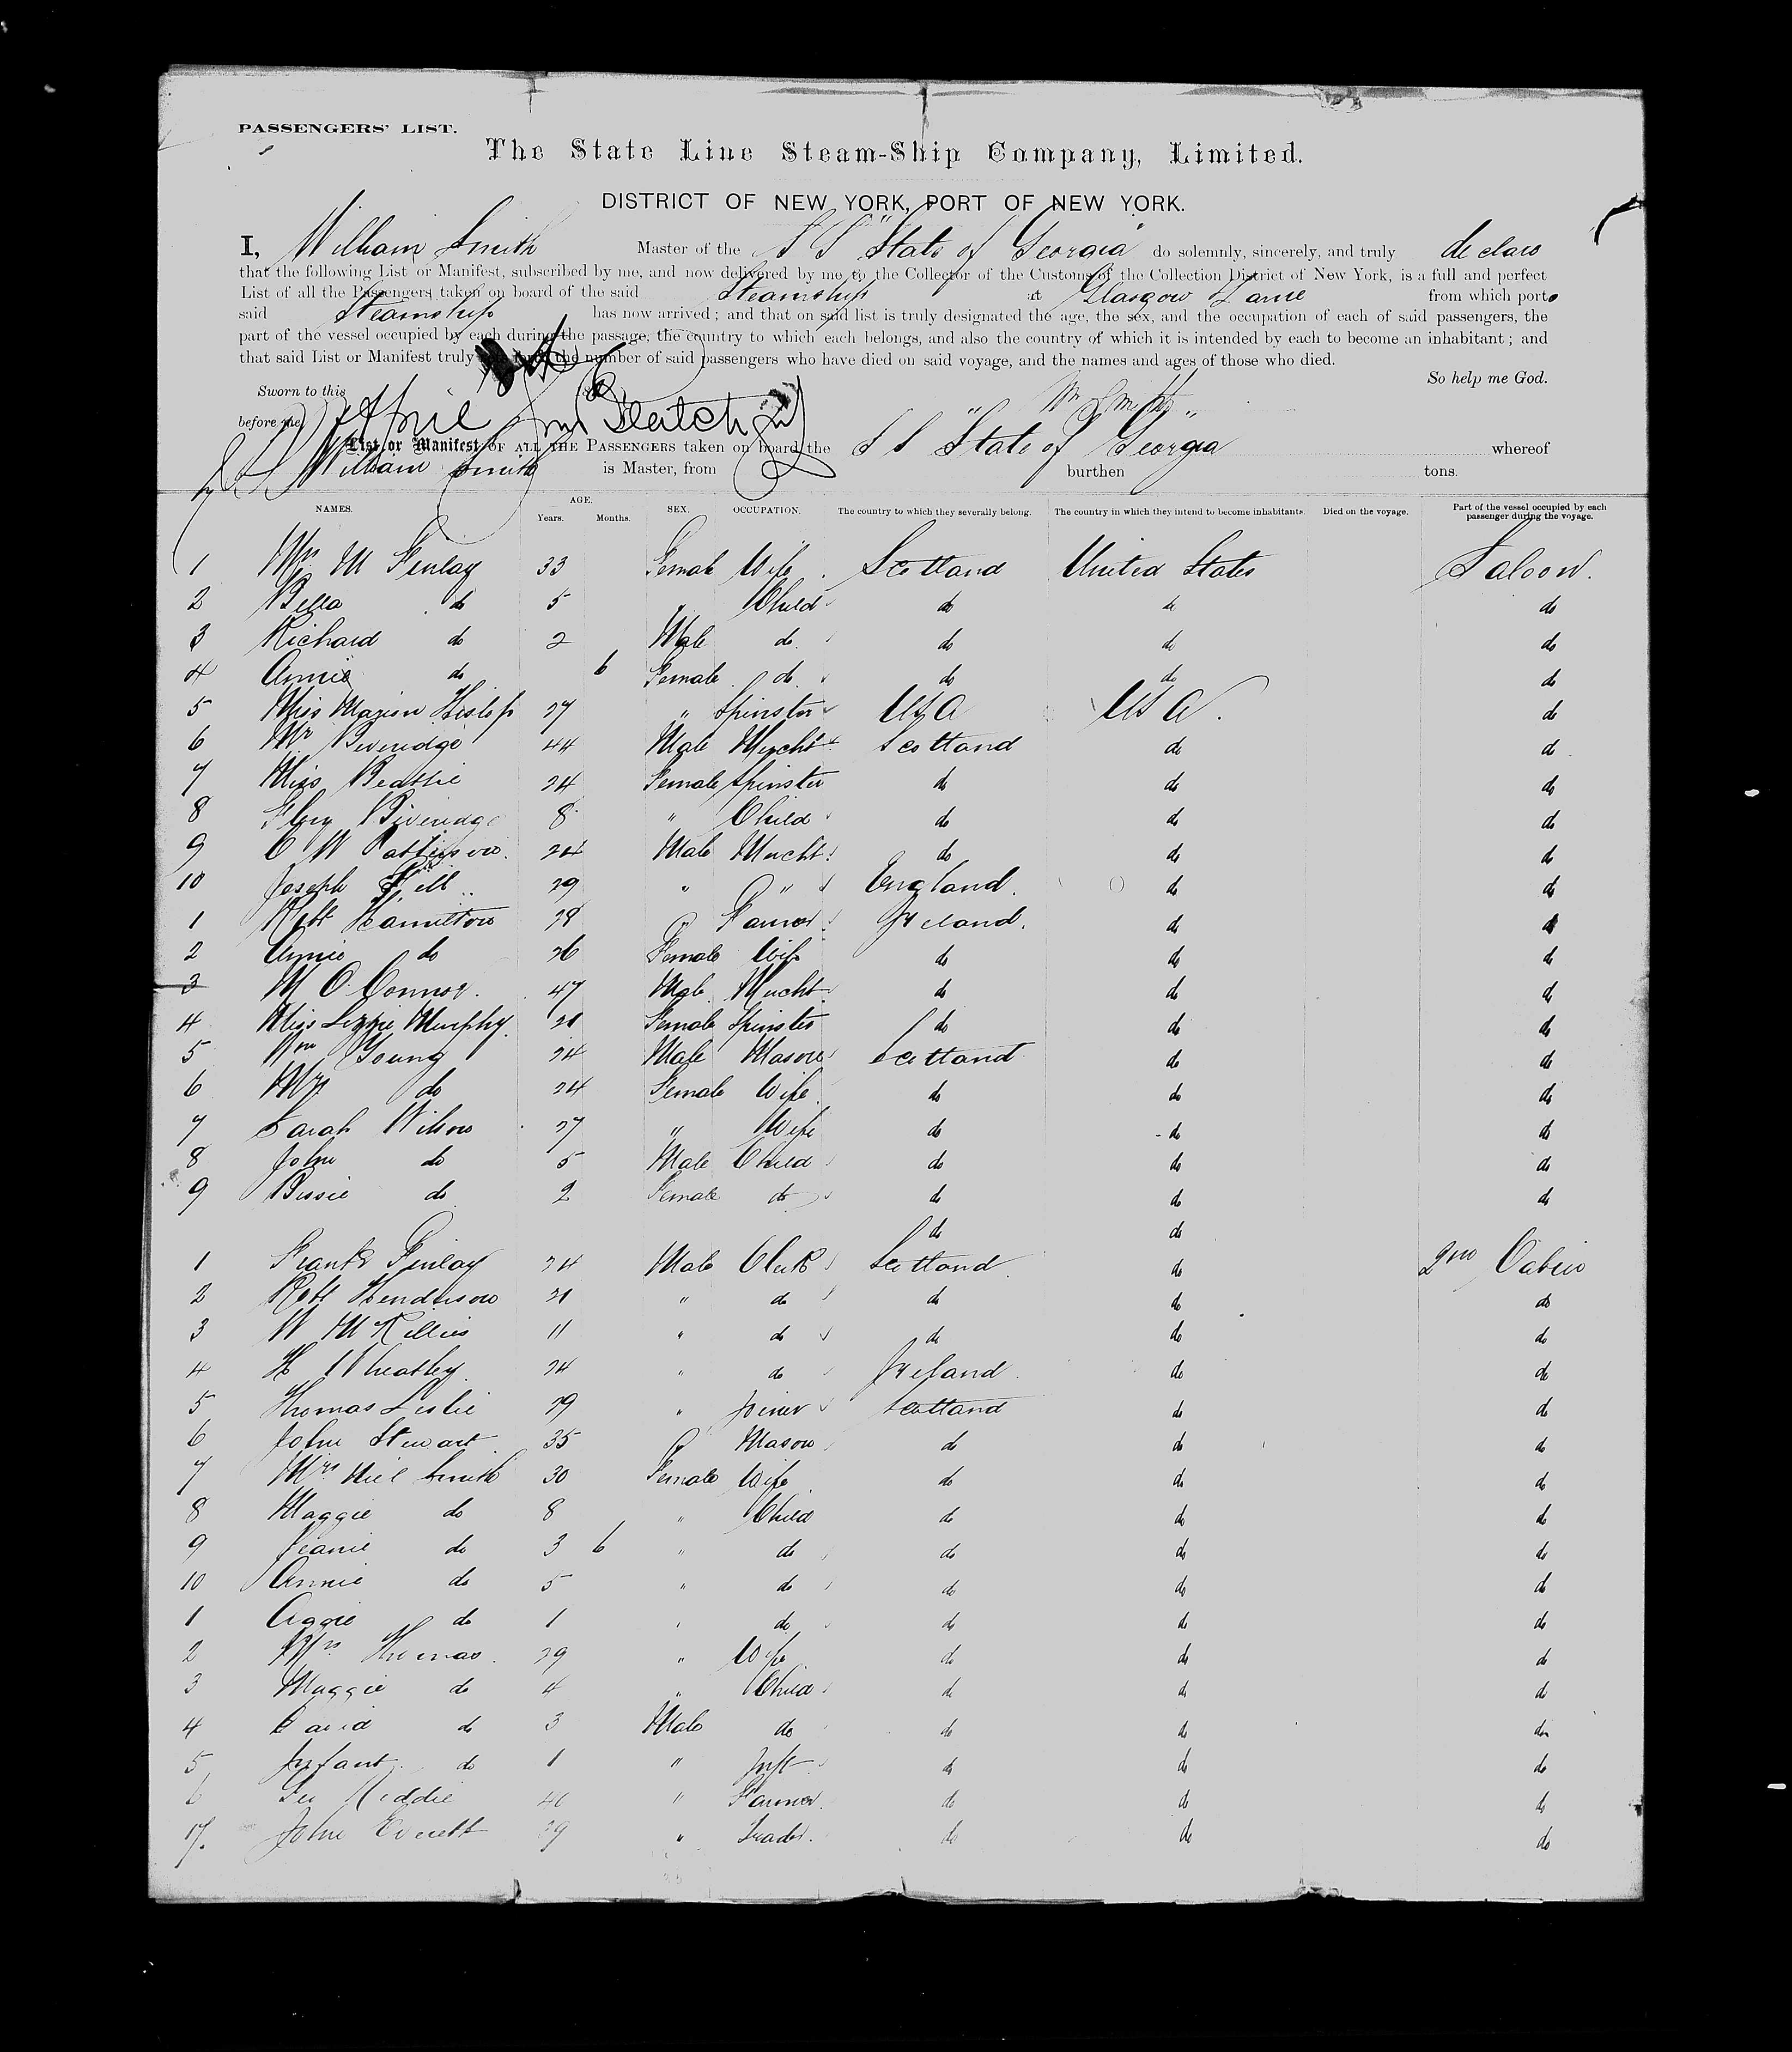 PASSENGERS' LIST.
The State Line Steam-Ship Company, Limited.
DISTRICT OF NEW YORK, PORT OF NEW YORK.
I, William Smith Master of the S S "State of Georgia" do solemnly, sincerely, and truly declare
that the following List or Manifest, subscribed by me, and now delivered by me to the Collector of the Customs of the Collection District of New York, is a full and perfect
List of all the Passengers taken on board of the said Steamship at Glasgow Larne from which port
said Steamship has now arrived; and that on said list is truly designated the age, the sex, and the occupation of each of said passengers, the
part of the vessel occupied by each during the passage, the country to which each belongs, and also the country of which it is intended by each to become an inhabitant; and
that said List or Manifest truly the number of said passengers who have died on said voyage, and the names and ages of those who died.
So help me God.
Sworn to this
before me April Wm Smith
List or Manifest OF ALL THE PASSENGERS taken on board the S S "State of Georgia" whereof
William Smith is Master, from burthen tons.
NAMES. AGE. Years. Months. SEX. OCCUPATION. The country to which they severally belong. The country in which they intend to become inhabitants. Died on the voyage. Part of the vessel occupied by each passenger during the voyage.
1 Mrs M Finlay 33 Female Wife Scotland United States Saloon.
2 Bella do 5 " Child do do do
3 Richard do 2 Male do do do do
4 Annie do 6 Female do do do do
5 Miss Marion Hislop 27 " Spinster USA USA. do
6 Mr Beveridge 44 Male Mercht Scotland do do
7 Miss Beattie 24 Female Spinster do do do
8 Beveridge 8 " Child do do do
9 C W Patterson 24 Male Mercht do do do
10 Joseph 29 " " England do do
1 Robt Hamilton 28 " Farmer Ireland. do do
2 Annie do 26 Female Wife do do do
3 M O'Connor. 47 Male Mercht do do do
4 Miss Lizzie Murphy. 21 Female Spinster do do do
5 Wm Young 24 Male Mason Scotland do do
6 Mrs do 24 Female Wife do do do
7 Sarah Wilson 27 " Wife do do do
8 John do 5 Male Child do do do
9 Bessie do 2 Female do do do do
do do
1 Frank Finlay 24 Male Clerk Scotland do 2nd Cabin
2 Robt Henderson 21 " do do do do
3 W 11 " do do do do
4 H Wheatley. 24 " do Ireland do do
5 Thomas Leslie 29 " Joiner Scotland do do
6 John Stewart 35 " Mason do do do
7 Mrs Neil Smith 30 Female Wife do do do
8 Maggie do 8 " Child do do do
9 Jeanie do 3 6 " do do do do
10 Annie do 5 " do do do do
1 Aggie do 1 " do do do do
2 Mrs Thomas. 29 " Wife do do do
3 Maggie do 4 " Child do do do
4 David do 3 Male do do do do
5 Infant do 1 " Inft do do do
6 " Farmer. do do do
17. John Everett 29 " Trader. do do do